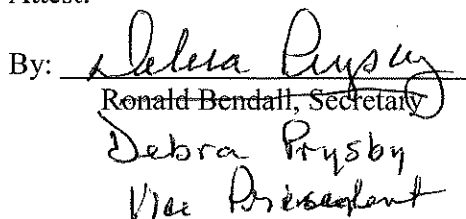 Attest:
By: Debra Prysby
Ronald Bendall, Secretary
Debra Prysby
Vice President